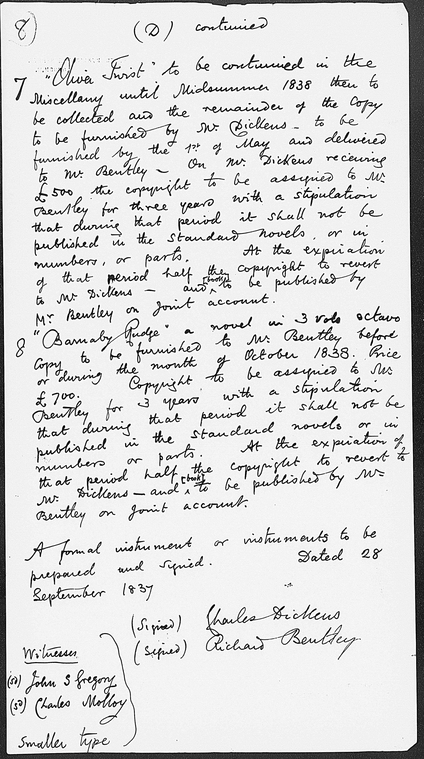 8) (D) continued
7 "Oliver Twist" to be continued in the
Miscellany until Midsummer 1838 then to
be collected and the remainder of the Copy
to be furnished by Mr. Dickens – to be
furnished by the 1st of May and delivered
to Mr. Bentley – On Mr. Dickens receiving
£500 the copyright to be assigned to Mr
Bentley for three years with a stipulation
that during that period it shall not be
published in the Standard novels, or in
numbers, or parts. At the expiration
of that period half the copyright to revert
to Mr. Dickens – and [book] to be published by
Mr. Bentley on joint account.
8 "Barnaby Rudge" a novel in 3 vols octavo
Copy to be furnished to Mr. Bentley before
or during the month of October 1838. Price
£700. Copyright to be assigned to Mr.
Bentley for 3 years with a stipulation
that during that period it shall not be
published in the standard novels or in
numbers or parts. At the expiration of
that period half the copyright to revert to
Mr. Dickens – and [book] to be published by Mr.
Bentley on joint account.
A formal instrument or instruments to be
prepared and signed. Dated 28
September 1837
(Signed) Charles Dickens
(Signed) Richard Bentley
Witnesses
(sd) John S Gregory
(sd) Charles Molloy
Smaller type